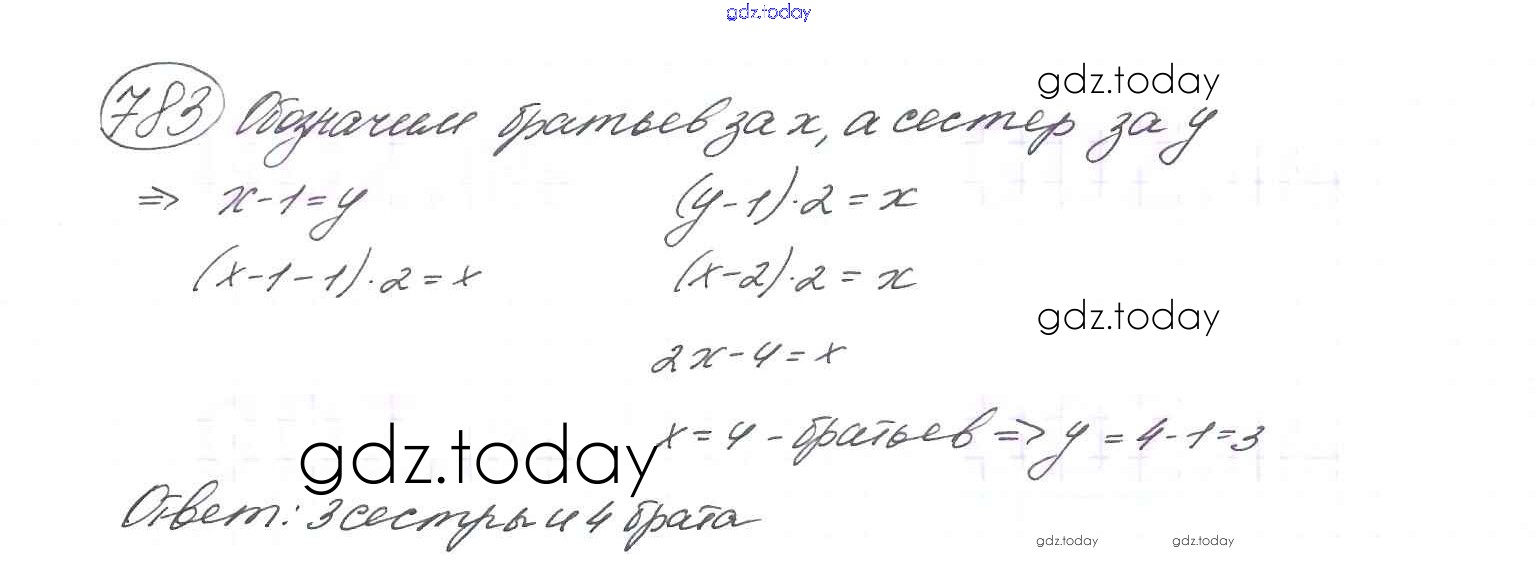 gdz.today
gdz.today
783 Обозначим братьев за x, а сестер за y
=> x-1=y (y-1)·2=x
(x-1-1)·2=x (x-2)·2=x
gdz.today
2x-4=x
gdz.today x=4 - братьев => y=4-1=3
Ответ: 3 сестры и 4 брата
gdz.today gdz.today